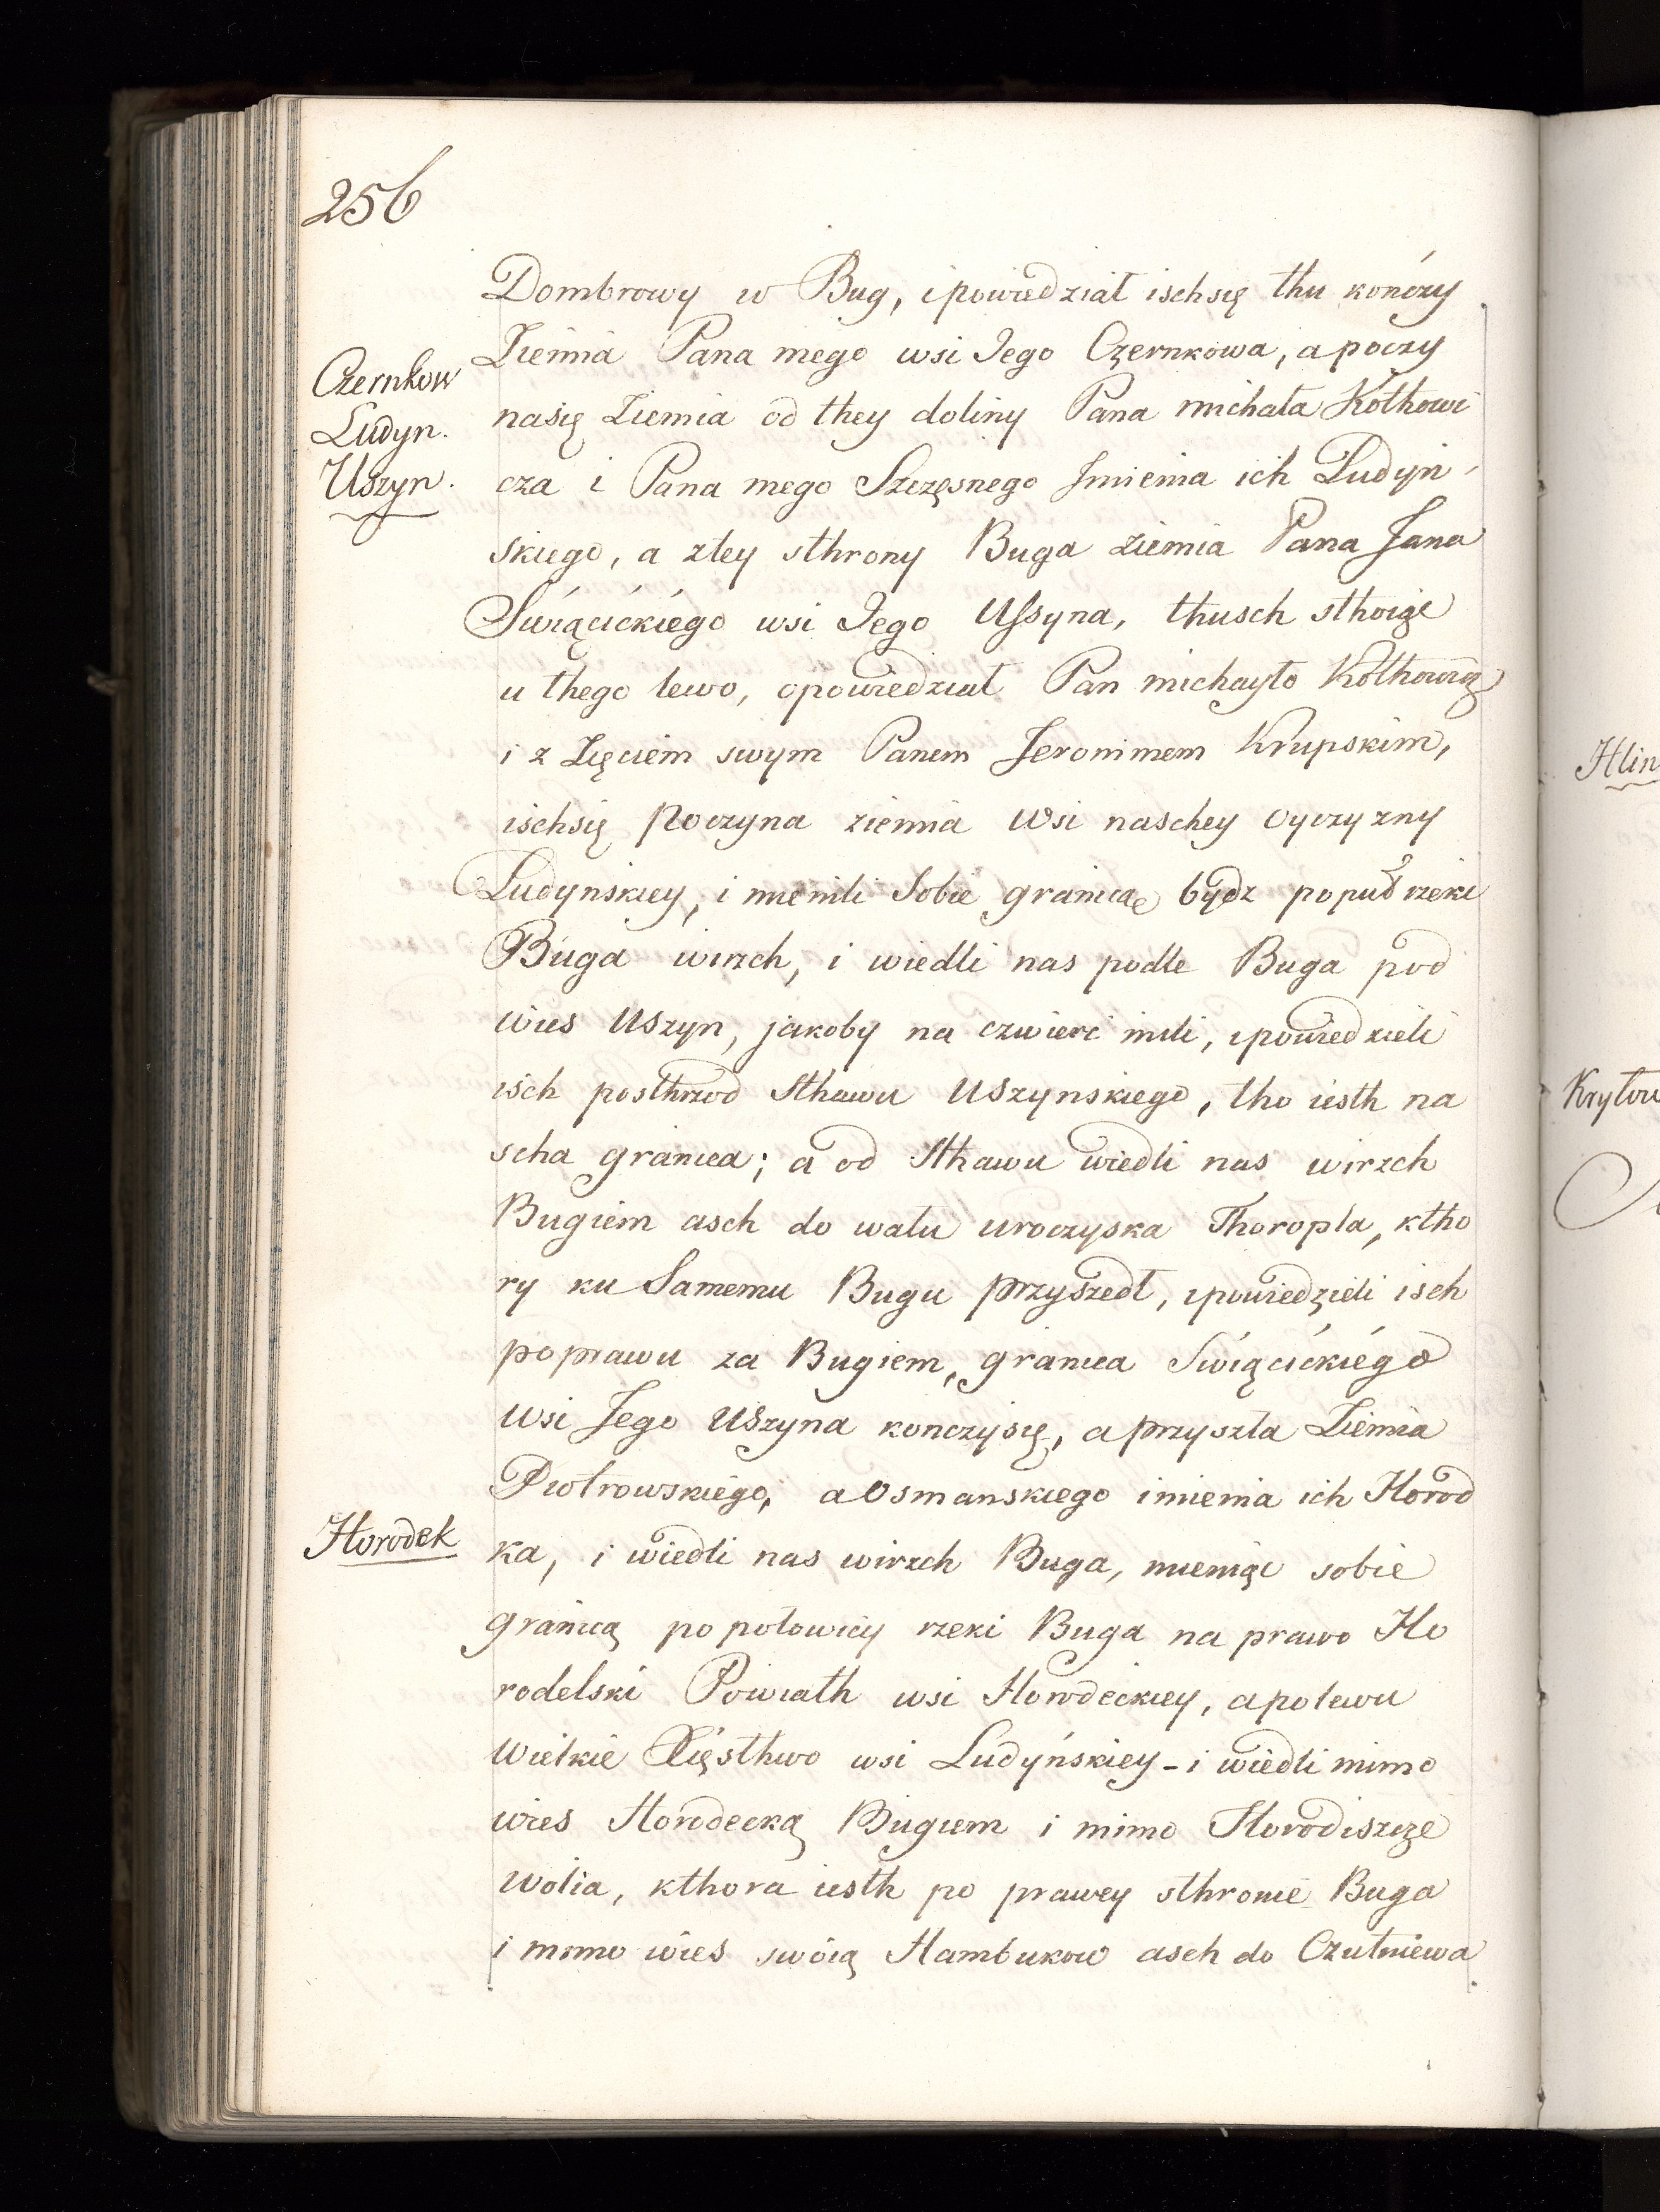 256
Dombrowy w Bug, ipowiedział ischsię thu kończy
Ziemia Pana mego wsi Jego Czernkowa, apoczy
Czernkow
nasię Ziemia od they doliny Pana michała Kolthowi
Ludyn.
cza i Pana mego Szczęsnego Jmienia ich Ludyn
Uszyn.
skiego, a ztey sthrony Buga ziemia Pana Jana
Swiącićkiego wsi Jego Ussyna, thusch sthoiąc
u thego lewo, opowiedział Pan michayło Kolthowicz
i z Zięciem swym Panem Jeronimem Krupskim,
ischsię poczyna ziemia wsi naschey oyczyzny
Ludynskiey, i mienili Sobie granicae bydz popuł rzeki
Buga wirzch, i wiedli nas podle Buga pod
wies Uszyn, jakoby na czwierć mili, ipowiedzieli
isch posthrzod Sthawu Uszynskiego, tho iesth na
scha granica; a od Sthawu wiedli nas wirzch
Bugiem asch do wału uroczyska Thoropla, ktho
ry ku Samemu Bugu przyszedł, ipowiedzieli isch
poprawu za Bugiem, granica Swiącićkiego
wsi Jego Uszyna konczysię, a przyszła Ziemia
Piotrowskiego, a Osmanskiego imienia ich Horod
Horodek
ka, i wiedli nas wirzch Buga, mieniąc sobie
granicą po połowicy rzeki Buga na prawo Ho
rodelski Powiath wsi Horodeckiey, apolewu
Wielkie Xięsthwo wsi Ludyńskiey - i wiedli mimo
wies Horodecką Bugiem i mimo Horodiszcze
Wolia, kthora iesth po prawey sthronie Buga
i mimo wies swoią Hambukow asch do Czutniewa
Hlin
Kryłow